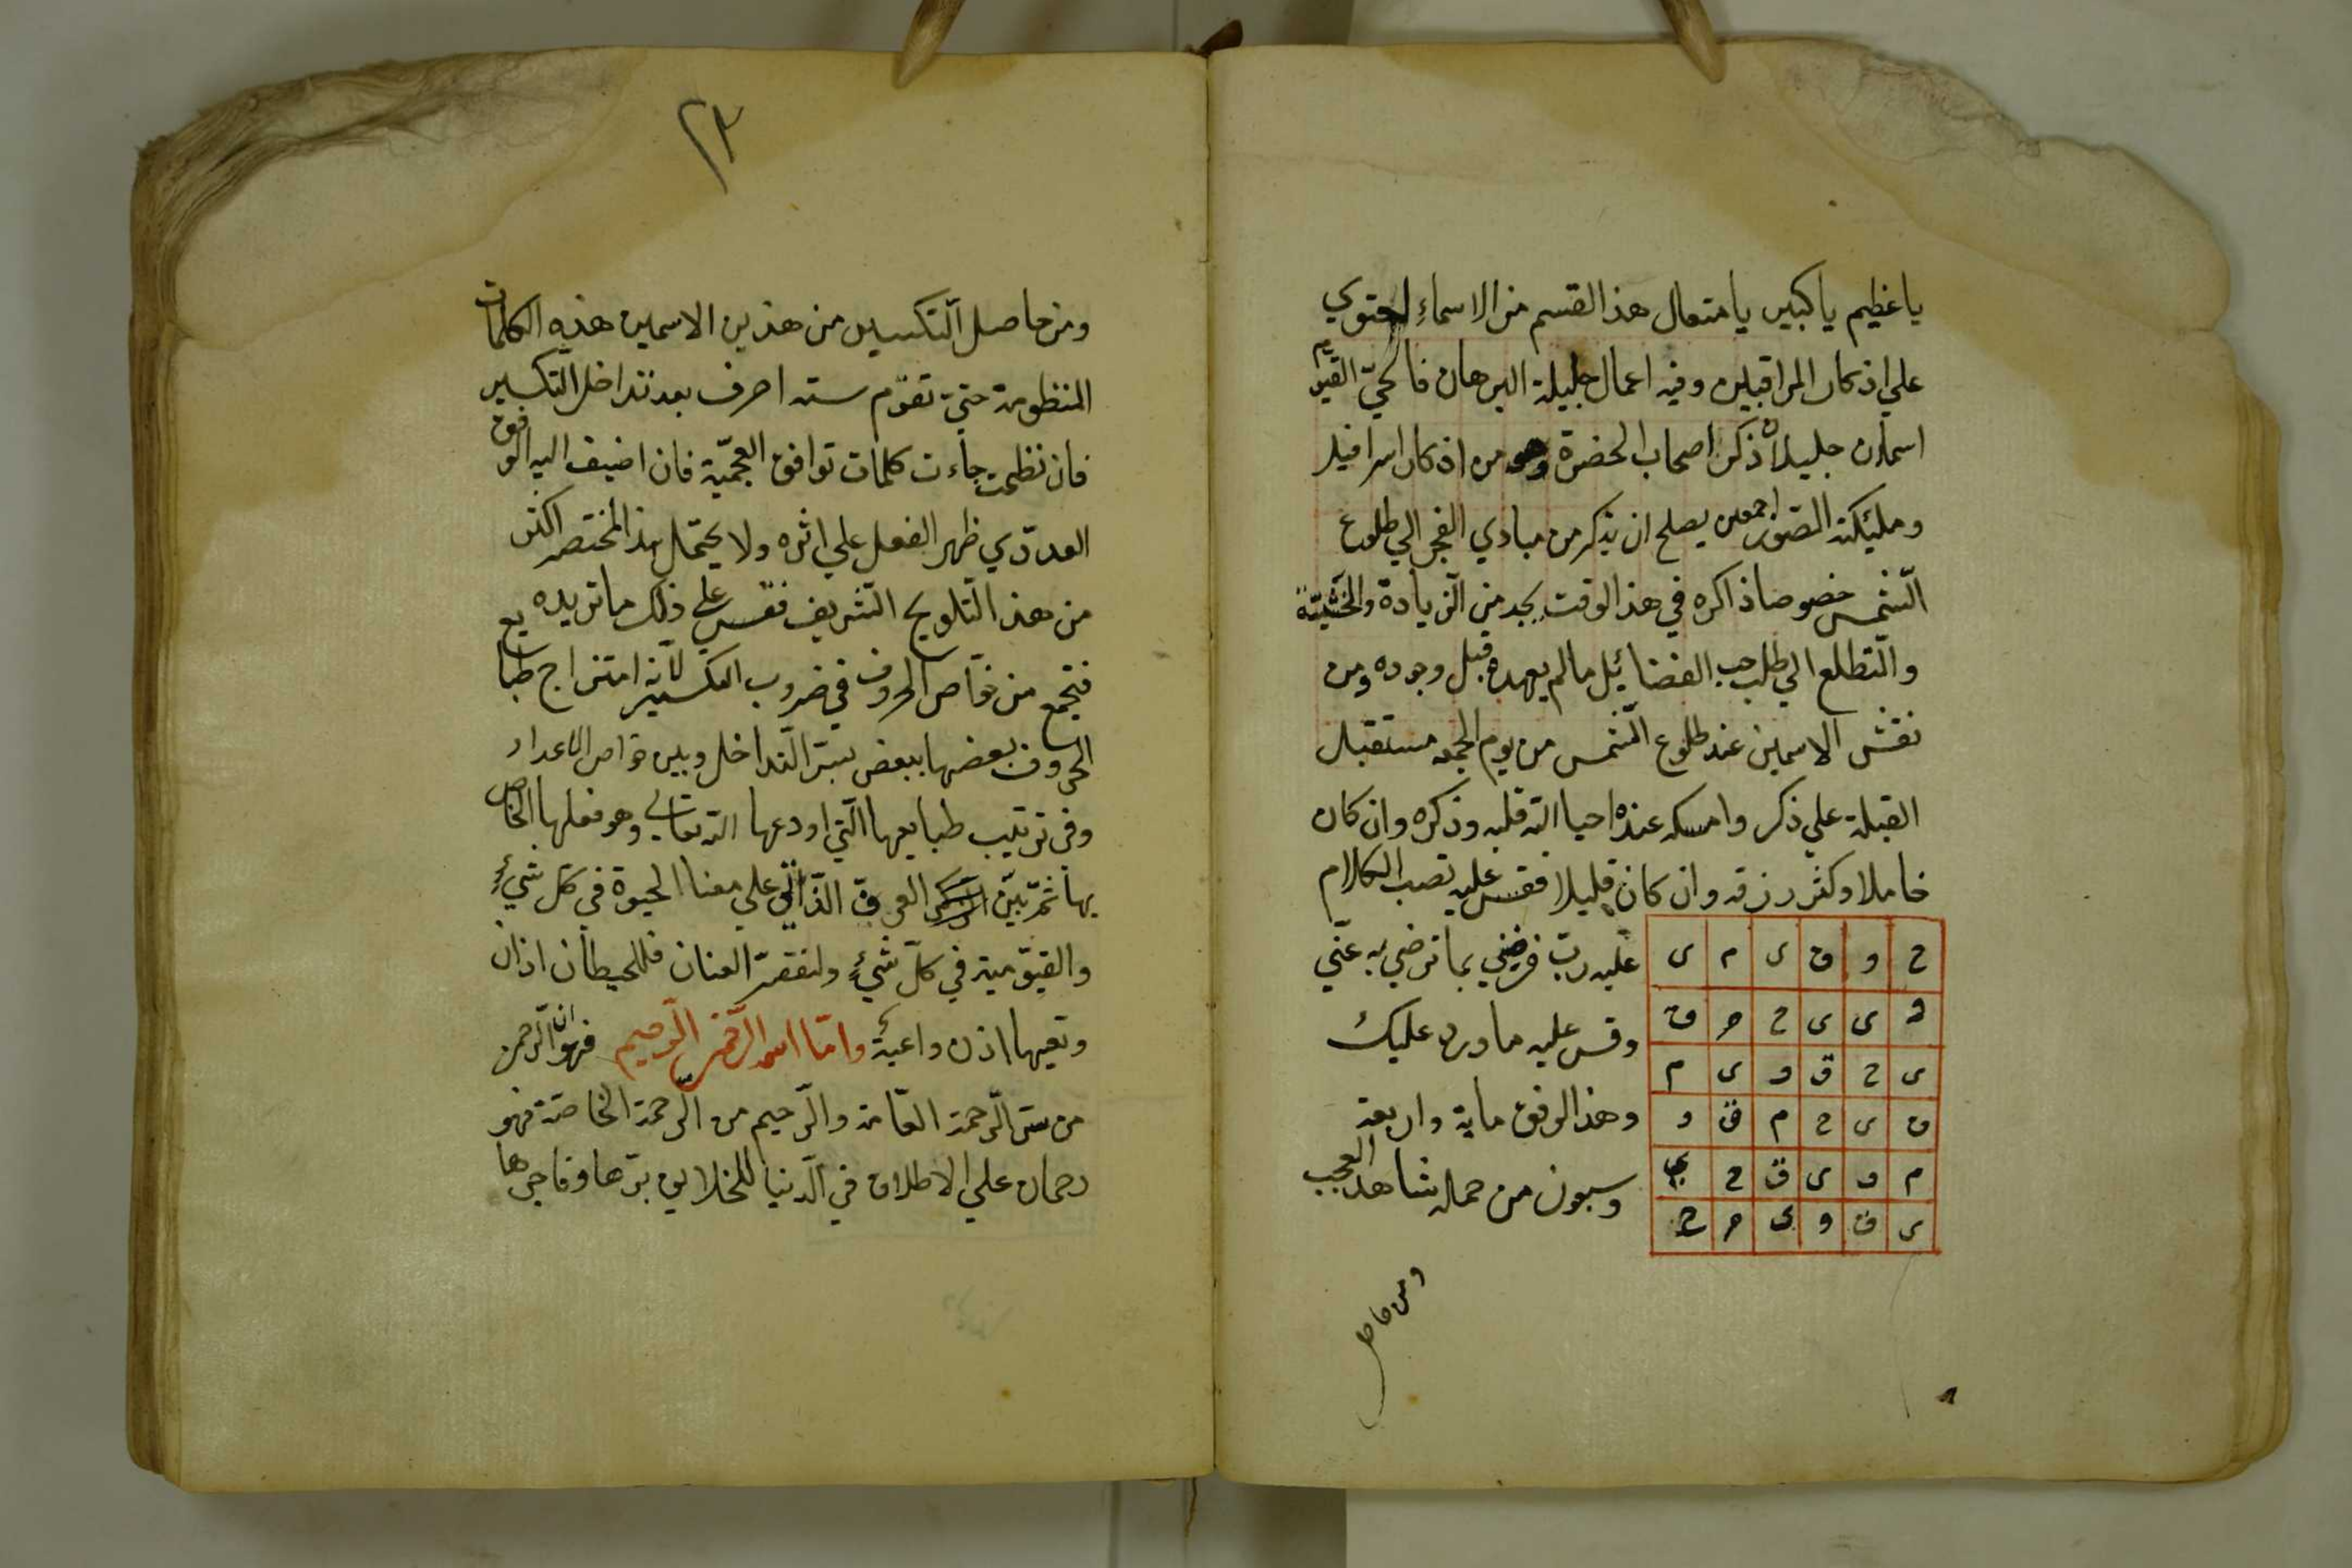 يا عظيم يا كبير يا متعال هذا القسم من الاسماء احتوي
علي اذكار المراقبين وفيه اعمال جليلة البرهان فالحيّ القيوم
اسمان جليلان ذكر اصحاب الحضرة وهو من اذكار اسرافيل
ومليكة الصور اجمعين يصلح ان يذكر من مبادي الفجر الي طلوع
الشّمس خصوصا ذاكره في هذا الوقت يجد من الزيادة والخشية
والتطلع الي طلب حب الفضائيل مالم يعهده قبل وجوده ومن
نقش الاسمين عند طلوع الشّمس من يوم الجمعه مستقبل
القبلة علي ذكر وامسكه عنده احيا الله قلبه وذكره وان كان
خاملا وكثر رزقه وان كان قليلا فقس عليه نصب الكلام
عليه ربّ فرضني بما ترضي به عنّي
وقس عليه ما ورد عليك
وهذا الوفق ماية واربعة
وسبعون من حمله شاهد العجب
ح و ق ى م ى
و ى ى ح م ق
ى ح ق و ى م
ق ى ح م ق و
م و ى ق ح ى
ى ق و ى م ح
ومن حاصل
٢٣
ومن حاصل التكسير من هذين الاسمين هذه الكلمات
المنظومة حتيّ تقوّم سته احرف بعد تداخل التّكسير
فان نظمت جاءت كلمات توافق العجميّة فان اضيف اليه الوفق
العددّي ظهر الفعل علي اثره ولا يحتمل هذا المختصر اكثر
من هذا التّلويح الشّريف فقس علي ذلك ما تريده
فتجمع من خوّاص الحروف في ضروب التكسير لانه امتزاج طبايع
الحروف بعضها ببعض بسرّ التّداخل وبين خواص الاعداد
وفي ترتيب طبايعها الّتي اودعها الله تعالي وهو فعلها الخاص
بها ثمّ بيّن الذّاتي علي معنا الحيوة في كلّ شيءٍ
والقيوّمية في كلّ شيءٍ ولنقصر العنان فللحيطان اذان
وتعيها اذن واعية وامّا اسمه الرّحمن الرّحيم فهو ان الرّحمن
من سرّ الرّحمة العّامة والرّحيم من الرّحمة الخاصّة فهو
رحمان علي الاطلاق في الدّنيا للخلايق برّها وفاجرها